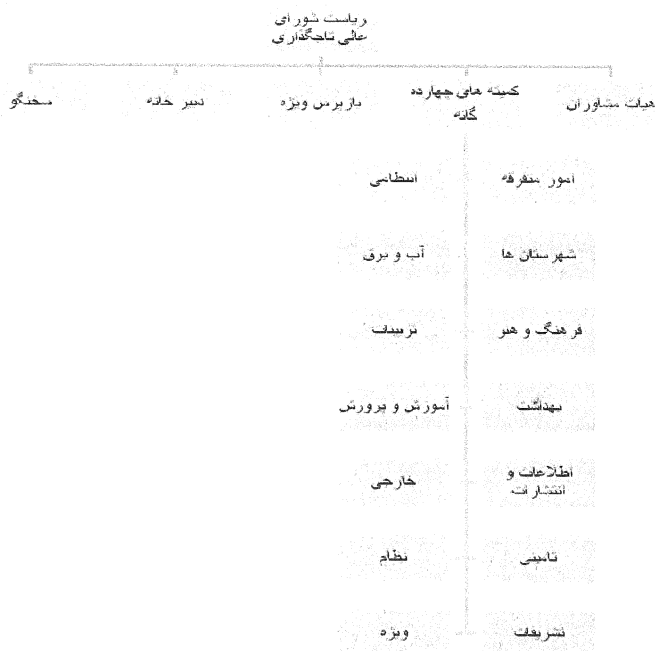 ریاست شورای
عالی تاجگذاری
هیات مشاوران
کمیته های چهارده
گانه
بازپرس ویژه
دبیر خانه
سخنگو
امور متفرقه
انتظامی
شهرستان ها
آب و برق
فرهنگ و هنر
تزیینات
بهداشت
آموزش و پرورش
اطلاعات و
انتشارات
خارجی
تامینی
نظام
تشریفات
ویژه